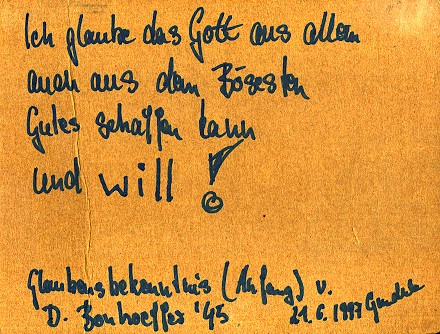 Ich glaube das Gott aus allem
auch aus dem Bösesten
Gutes schaffen kann
und will!
Glaubensbekenntnis (Anfang) v.
D. Bonhoeffer '45 21.6.1997